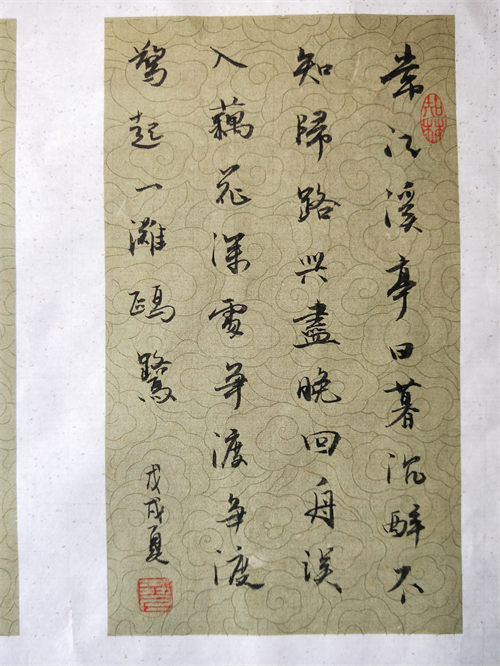 常记溪亭日暮沉醉不
知歸路兴盡晚回舟误
入藕花深處争渡争渡
驚起一灘鷗鷺
戊戌夏